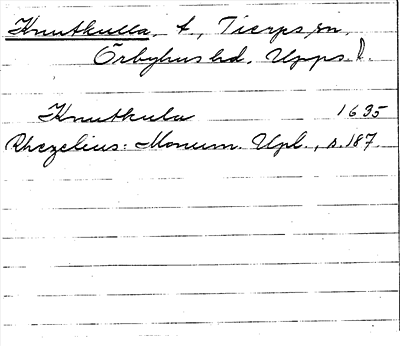 Knutkulla, t., Tierps sn,
Örbyhus hd. Upps. l.
Knutkula 1635
Rhezelius: Monum. Upl., s. 187.